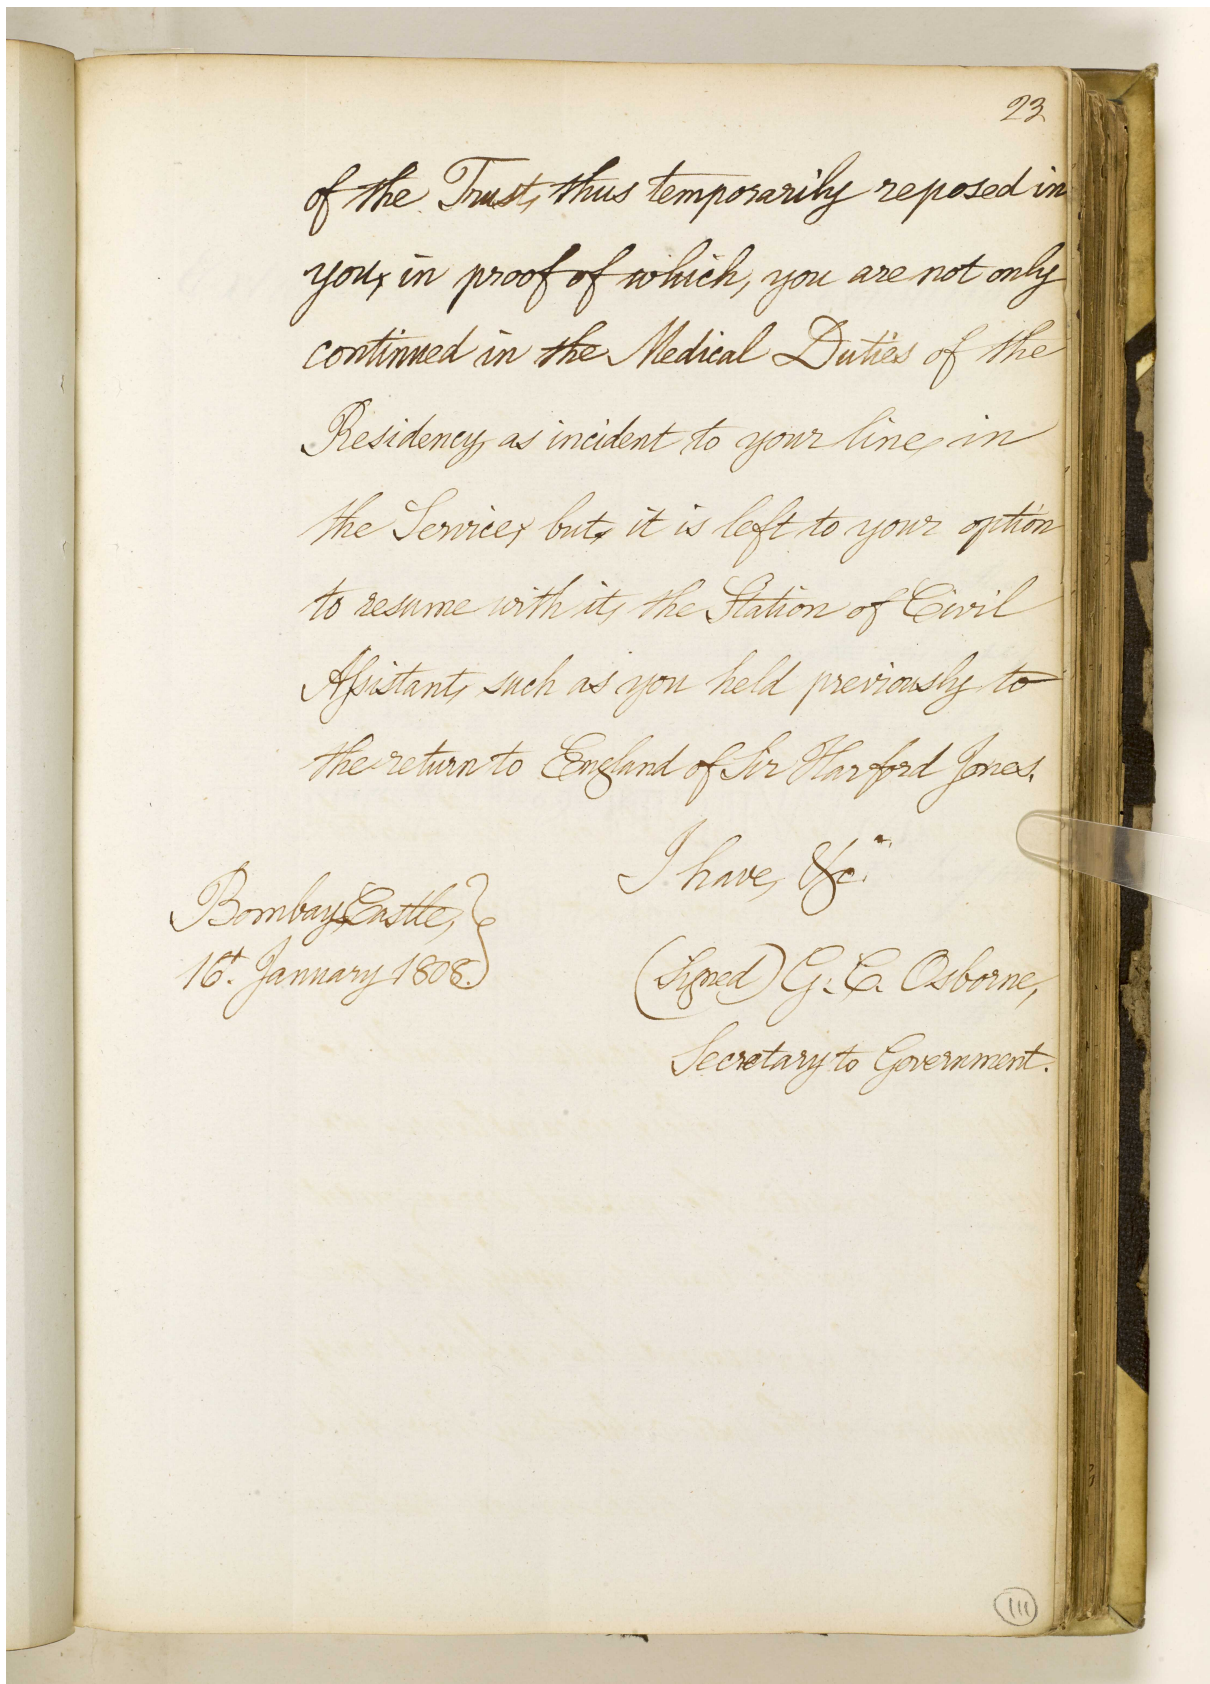 23
of the Trust, thus temporarily reposed in
you, in proof of which, you are not only
continued in the Medical Duties of the
Residency, as incident to your line, in
the Service, but, it is left to your option
to resume with it, the Station of Civil
Aſsistant, such as you held previously to
the return to England of Sir Harford Jones.
I have, &c.a
Bombay Castle,
16t. January 1808.
(Signed) G. C. Osborne,
Secretary to Government.
111